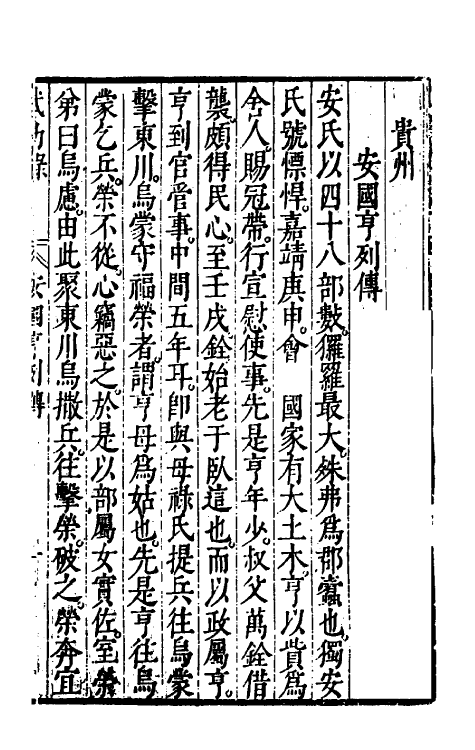 貴州
安國亨列傳
安氏以四十八部數。玀羅最大。銖弗爲郡蠹也。獨安
氏號慓悍。嘉靖庚申。會　國家有大土木。亨以貲爲
舍人。賜冠帶。行宣慰使事。先是亨年少。叔父萬銓借
襲。頗得民心。至壬戌。銓始老于臥這也。而以政屬亨。
亨到官管事。中間五年耳。卽與母祿氏提兵往烏蒙
擊東川。烏蒙守福榮者。謂亨母爲姑也。先是亨往烏
蒙乞兵。榮不從。心竊惡之。於是以部屬女實佐。室榮
弟曰烏慮。由此聚東川烏撒兵。往擊榮。破之。榮奔宜
武功錄
安國亨列傳